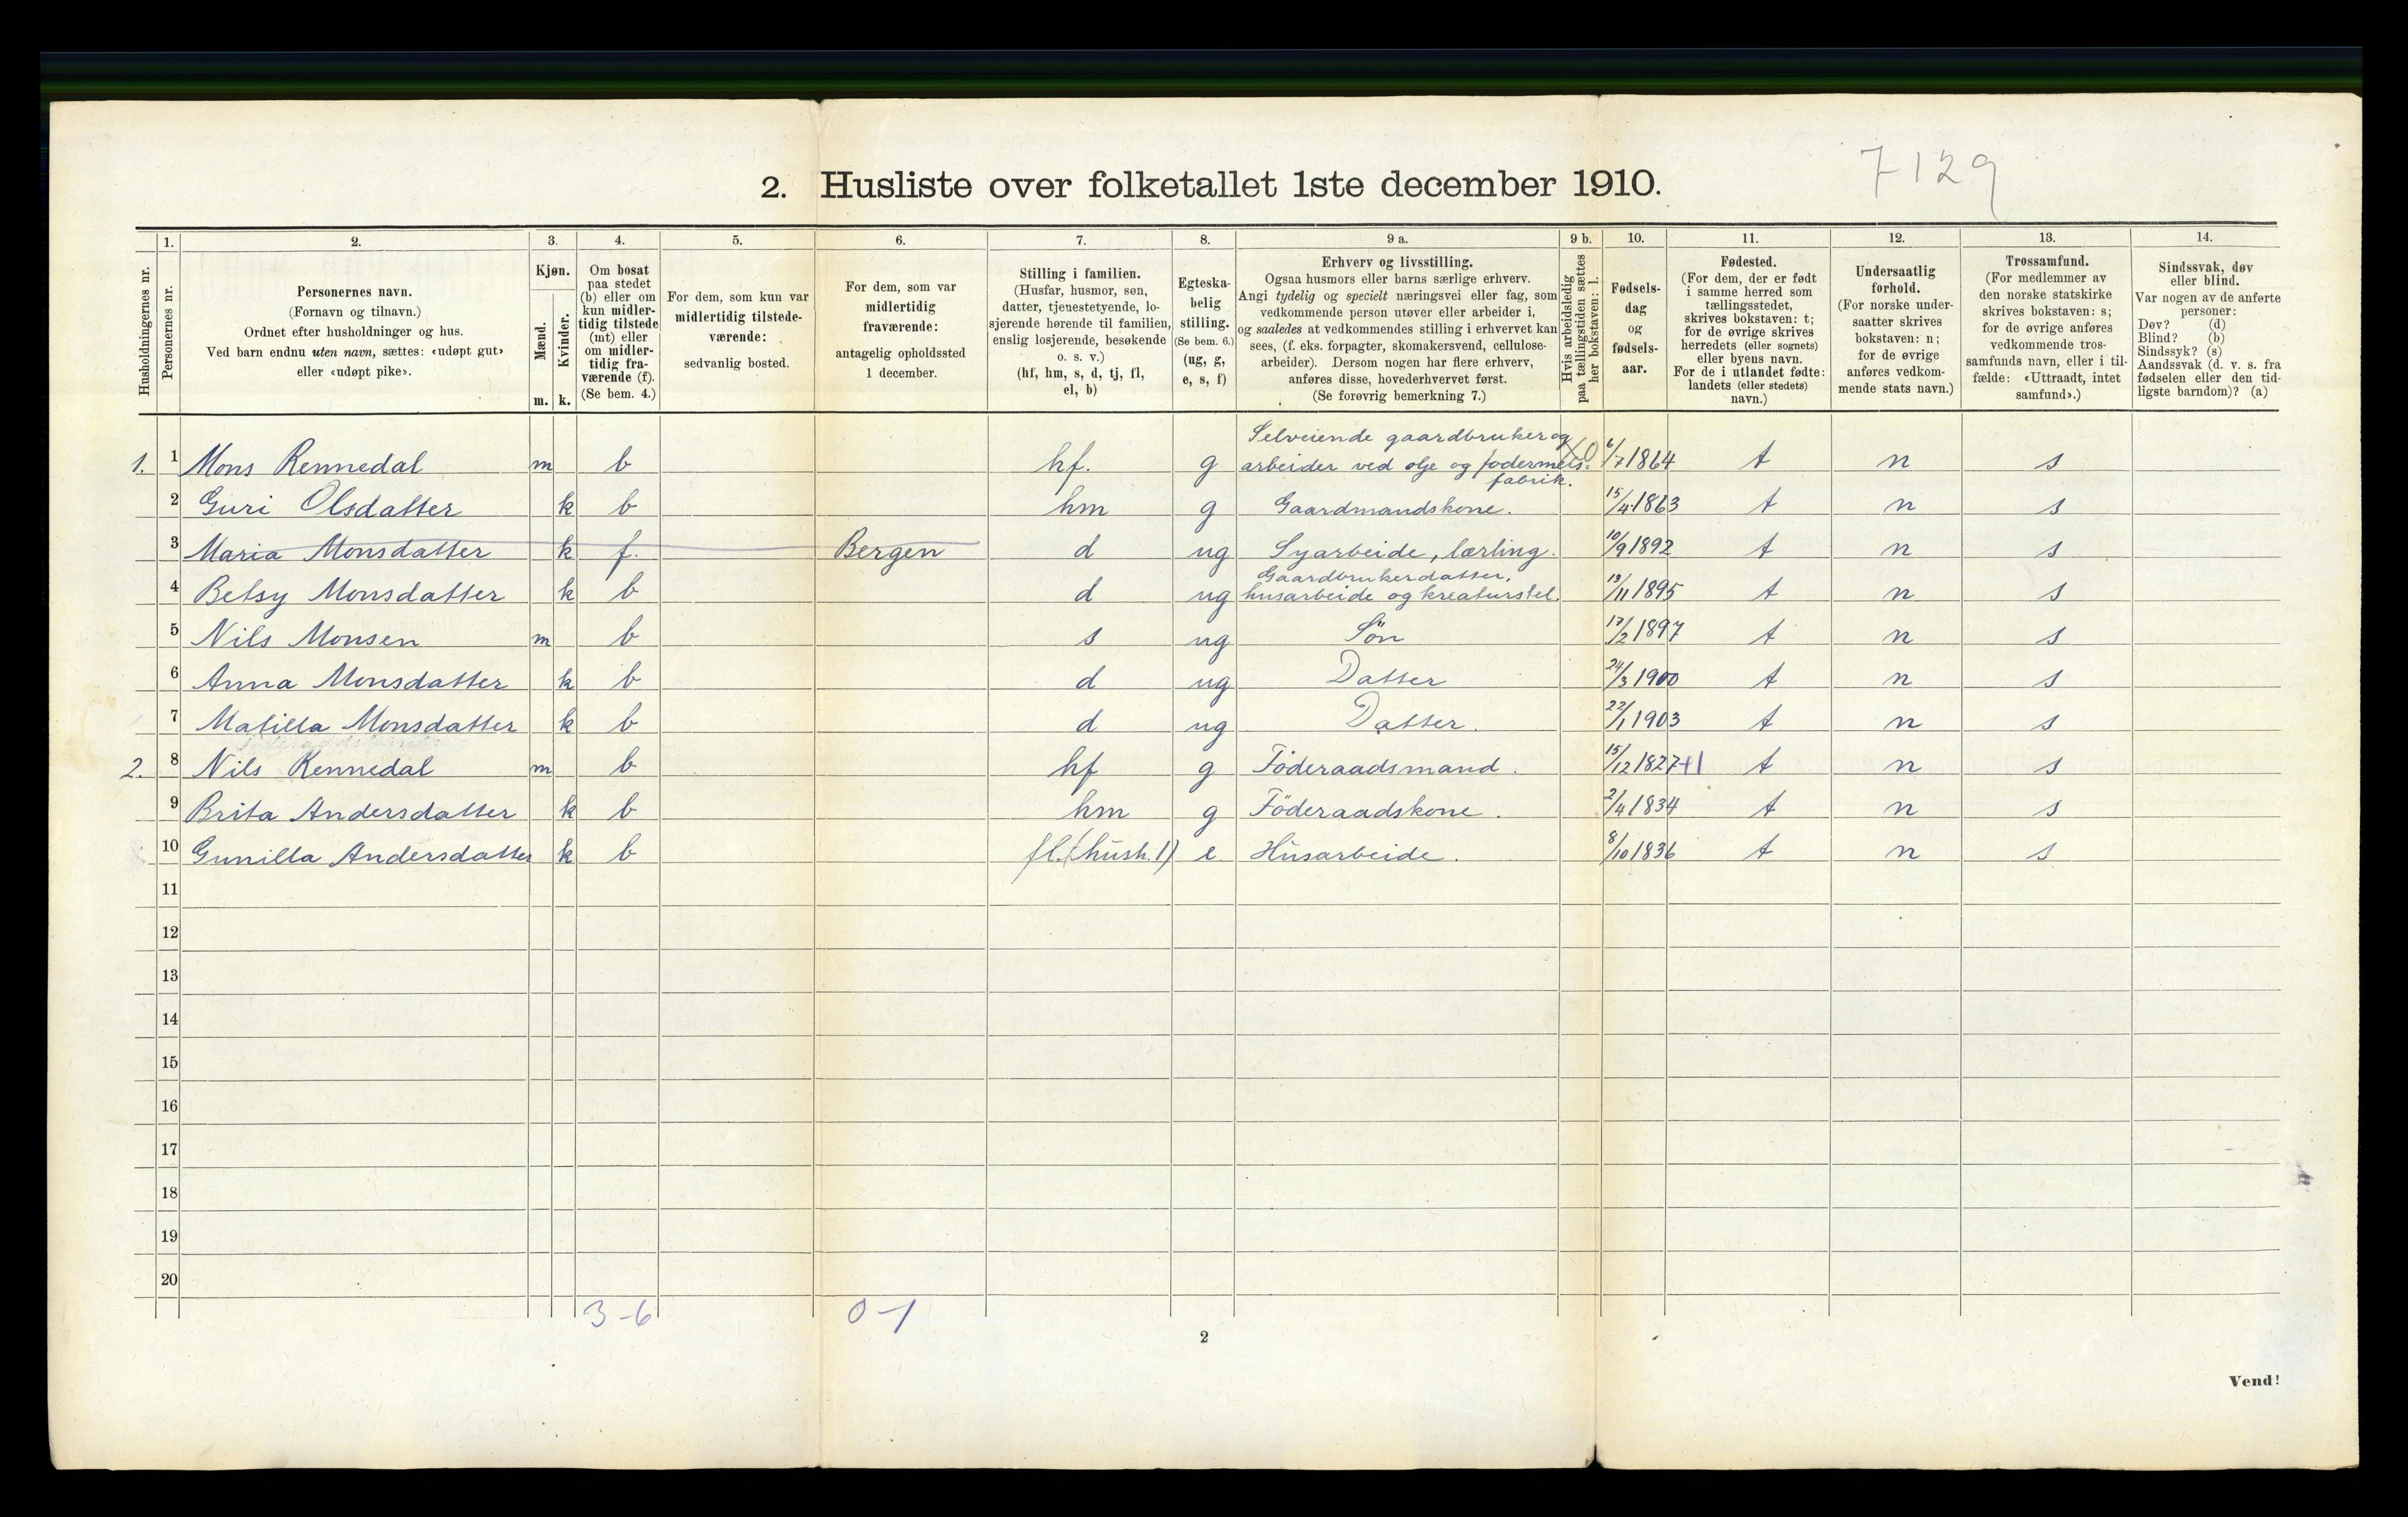 7129
2. Husliste over folketallet 1ste december 1910.
Husholdningernes nr.
1. Personernes nr.
2. Personernes navn.
(Fornavn og tilnavn.)
Ordnet efter husholdninger og hus.
Ved barn endnu uten navn, sættes: «udøpt gut»
eller «udøpt pike».
3. Kjøn.
Mænd. m.
Kvinder. k.
4. Om bosat
paa stedet
(b) eller om
kun midler-
tidig tilstede
(mt) eller
om midler-
tidig fra-
værende (f).
(Se bem. 4.)
5. For dem, som kun var
midlertidig tilstede-
værende:
sedvanlig bosted.
6. For dem, som var
midlertidig
fraværende:
antagelig opholdssted
1 december.
7. Stilling i familien.
(Husfar, husmor, søn,
datter, tjenestetyende, lo-
sjerende hørende til familien,
enslig losjerende, besøkende
o. s. v.)
(hf, hm, s, d, tj, fl,
el, b)
8. Egteska-
belig
stilling.
(Se bem. 6.)
(ug, g,
e, s, f)
9 a. Erhverv og livsstilling.
Ogsaa husmors eller barns særlige erhverv.
Angi tydelig og specielt næringsvei eller fag, som
vedkommende person utøver eller arbeider i,
og saaledes at vedkommendes stilling i erhvervet kan
sees, (f. eks. forpagter, skomakersvend, cellulose-
arbeider). Dersom nogen har flere erhverv,
anføres disse, hovederhvervet først.
(Se forøvrig bemerkning 7.)
9 b. Hvis arbeidsledig
paa tællingstiden sættes
her bokstaven: l.
10. Fødsels-
dag
og
fødsels-
aar.
11. Fødested.
(For dem, der er født
i samme herred som
tællingsstedet,
skrives bokstaven: t;
for de øvrige skrives
herredets (eller sognets)
eller byens navn.
For de i utlandet fødte:
landets (eller stedets)
navn.)
12. Undersaatlig
forhold.
(For norske under-
saatter skrives
bokstaven: n;
for de øvrige
anføres vedkom-
mende stats navn.)
13. Trossamfund.
(For medlemmer av
den norske statskirke
skrives bokstaven: s;
for de øvrige anføres
vedkommende tros-
samfunds navn, eller i til-
fælde: «Uttraadt, intet
samfund».)
14. Sindssvak, døv
eller blind.
Var nogen av de anførte
personer:
Døv? (d)
Blind? (b)
Sindssyk? (s)
Aandssvak (d. v. s. fra
fødselen eller den tid-
ligste barndom)? (a)
1. 1 Mons Rennedal m b hf. g Selveiende gaardbruker og
arbeider ved olje og fodermels-
fabrik. 6/7 1864 t n s
2 Guri Olsdatter k b hm g Gaardmandskone. 15/4 1863 t n s
3 Maria Monsdatter k f. Bergen d ug Syarbeide, lærling. 10/9 1892 t n s
4 Betsy Monsdatter k b d ug Gaardbrukerdatter,
husarbeide og kreaturstel. 13/11 1895 t n s
5 Nils Monsen m b s ug Sön 17/2 1897 t n s
6 Anna Monsdatter k b d ug Datter 24/3 1900 t n s
7 Matilla Monsdatter k b d ug Datter. 22/1 1903 t n s
2. 8 Nils Rennedal m b hf g Föderaadsmand. 15/12 1827+1 t n s
9 Brita Andersdatter k b hm g Föderaadskone. 2/4 1834 t n s
10 Gunilla Andersdatter k b fl. (hush. 1) e Husarbeide. 8/10 1836 t n s
11
12
13
14
15
16
17
18
19
20
3-6 0-1
2
Vend!